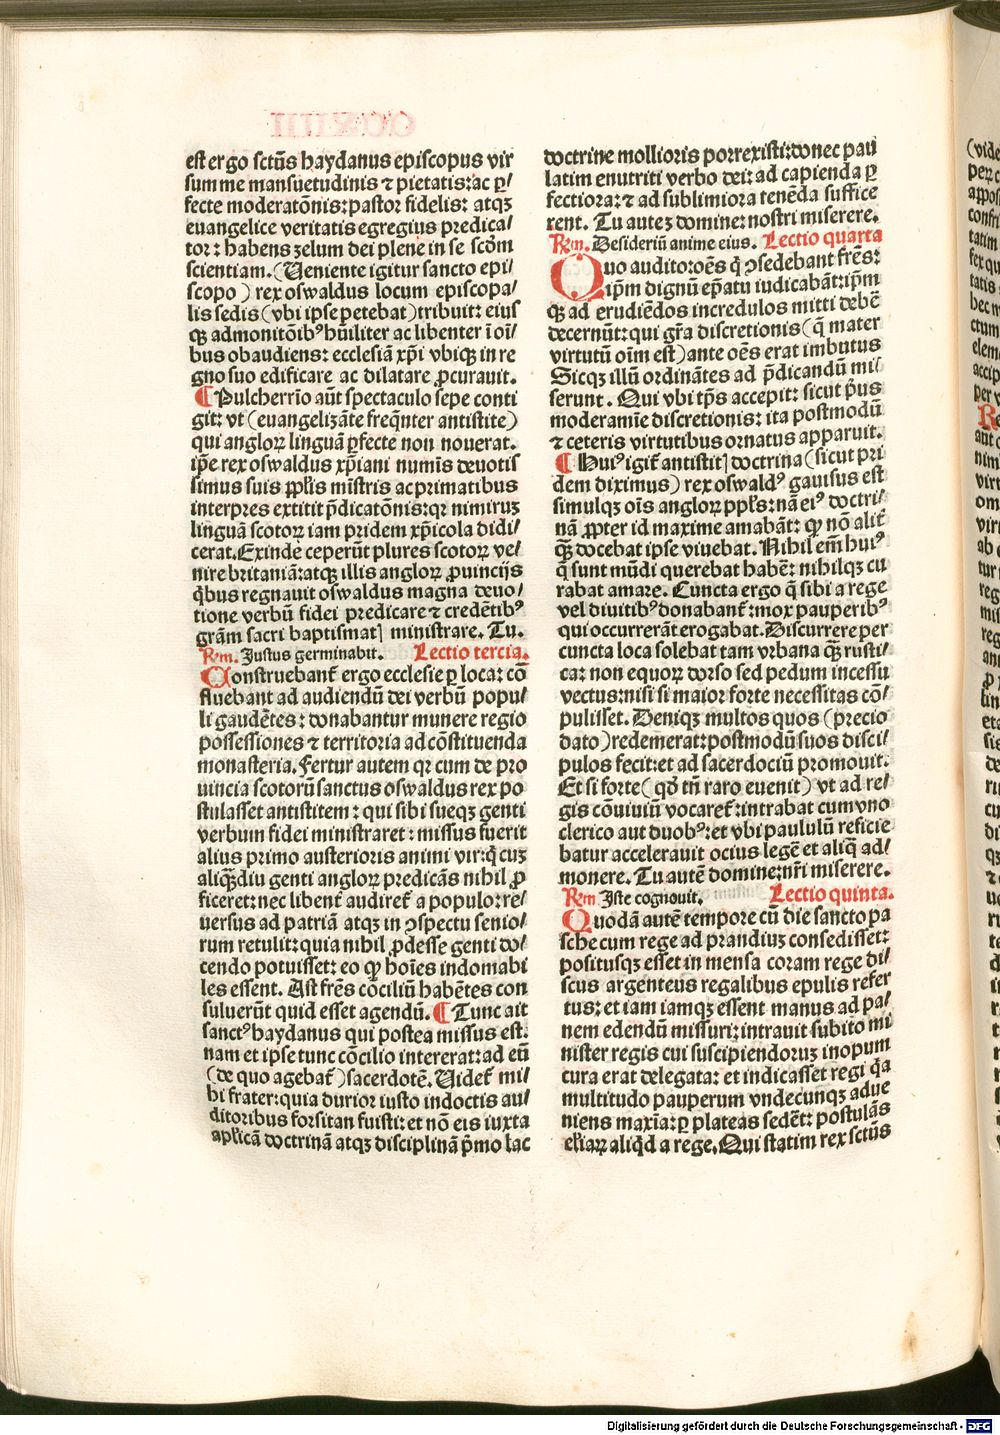 est ergo sctūs haydanus episcopus vir
summe mansuetudinis ⁊ pietatis: ac ꝑ/
fecte moderatōnis: pastor fidelis: atqꝫ
euangelice veritatis egregius predica/
tor: habens zelum dei plene in se scōm
scientiam. (Veniente igitur sancto epi/
scopo) rex oswaldus locum episcopa/
lis sedis (vbi ipse petebat) tribuit: eius
qꝫ admonitōibꝰ hūiliter ac libenter ī oī/
bus obaudiens: ecclesiā xp̄i vbiqꝫ in re
gno suo edificare ac dilatare ꝓcurauit.
¶ Pulcherrīo aūt spectaculo sepe conti
git: vt (euangelizāte freq̄nter antistite)
qui angloꝝ linguā ꝑfecte non nouerat.
ip̄e rex oswaldus xp̄iani numīs deuotis
simus suis ppl̄is mīstris ac primatibus
interpres extitit p̄dicatōnis: qꝛ nimiruꝫ
linguā scotoꝝ iam pridem xp̄icola didi/
cerat. Exinde ceperūt plures scotoꝝ ve/
nire britaniā: atqꝫ illis angloꝝ ꝓuincijs
q̄bus regnauit oswaldus magna deuo/
tione verbū fidei predicare ⁊ credētibꝰ
grām sacri baptismatꝭ ministrare. Tu.
Rm. Justus germinabit. Lectio tercia.
Construebanť ergo ecclesie ꝑ loca: cō
fluebant ad audiendū dei verbū popu/
li gaudētes: donabantur munere regio
possessiones ⁊ territoria ad cōstituenda
monasteria. Fertur autem qꝛ cum de pro
uincia scotorū sanctus oswaldus rex po
stulasset antistitem: qui sibi sueqꝫ genti
verbum fidei ministraret: missus fuerit
alius primo austerioris animi vir: q̄ cuꝫ
aliqꝫdiu genti angloꝝ predicās nihil ꝓ
ficeret: nec libenť audireť a populo: re/
uersus ad patriā atqꝫ in ꝯspectu senio/
rum retulit: quia nihil ꝓdesse genti do/
cendo potuisset: eo ꝙ hoīes indomabi
les essent. Ast frēs cōciliū habētes con
suluerūt quid esset agendū. ¶ Tunc ait
sanctꝰ haydanus qui postea missus est.
nam et ipse tunc cōcilio intererat: ad eū
(de quo agebať) sacerdotē. Videť mi/
hi frater: quia durior iusto indoctis au/
ditoribus forsitan fuisti: et nō eis iuxta
ap̄licā doctrinā atqꝫ disciplinā p̄mo lac
doctrine mollioris porrexisti: donec pau
latim enutriti verbo dei: ad capienda ꝑ
fectiora: ⁊ ad sublimiora tenēda suffice
rent. Tu autez domine: nostri miserere.
Rm. Desideriū anime eius. Lectio quarta
Quo audito: oēs q̄ ꝯsedebant frēs:
ip̄m dignū ep̄atu iudicabāt: ip̄m
qꝫ ad erudiēdos incredulos mitti debē
decernūt: qui gr̄a discretionis (q̄ mater
virtutū oīm est) ante oēs erat imbutus
Sicqꝫ illū ordinātes ad p̄dicandū mi/
serunt. Qui vbi tp̄s accepit: sicut p̄us
moderamīe discretionis: ita postmodū
⁊ ceteris virtutibus ornatus apparuit.
¶ Huiꝰ igiť antistitꝭ doctrina (sicut pri
dem diximus) rex oswaldꝰ gauisus est
simulqꝫ oīs angloꝝ ppl̄s: nā eiꝰ doctri/
nā ꝓpter id maxime amabāt: ꝙ nō aliť
qꝫ docebat ipse viuebat. Nihil em̄ huiꝰ
q̄ sunt mūdi querebat habē: nihilqꝫ cu
rabat amare. Cuncta ergo q̄ sibi a rege
vel diuitibꝰ donabanť: mox pauperibꝰ
qui occurrerāt erogabat. Discurrere per
cuncta loca solebat tam vrbana qꝫ rusti/
ca: non equoꝝ dorso sed pedum incessu
vectus: nisi si maior forte necessitas cō/
pulisset. Deniqꝫ multos quos (precio
dato) redemerat: postmodū suos disci/
pulos fecit: et ad sacerdociū promouit.
Et si forte (qd̄ tn̄ raro euenit) vt ad re/
gis cōuiuiū vocareť: intrabat cum vno
clerico aut duobꝰ: et vbi paululū reficie
batur accelerauit ocius legē et aliq̄ ad/
monere. Tu autē domine: nr̄i miserere.
Rm Iste cognouit. Lectio quinta.
Quodā autē tempore cū die sancto pa
sche cum rege ad prandiuꝫ consedisset:
positusqꝫ esset in mensa coram rege di/
scus argenteus regalibus epulis refer
tus: et iam iamqꝫ essent manus ad pa/
nem edendū missuri: intrauit subito mi
nister regis cui suscipiendoruꝫ inopum
cura erat delegata: et indicasset regi q̄a
multitudo pauperum vndecunqꝫ adue
niens maxīa: ꝑ plateas sedēt: postulās
elīaꝝ aliqd̄ a rege. Qui statim rex sctūs
Digitalisierung gefördert durch die Deutsche Forschungsgemeinschaft - DFG